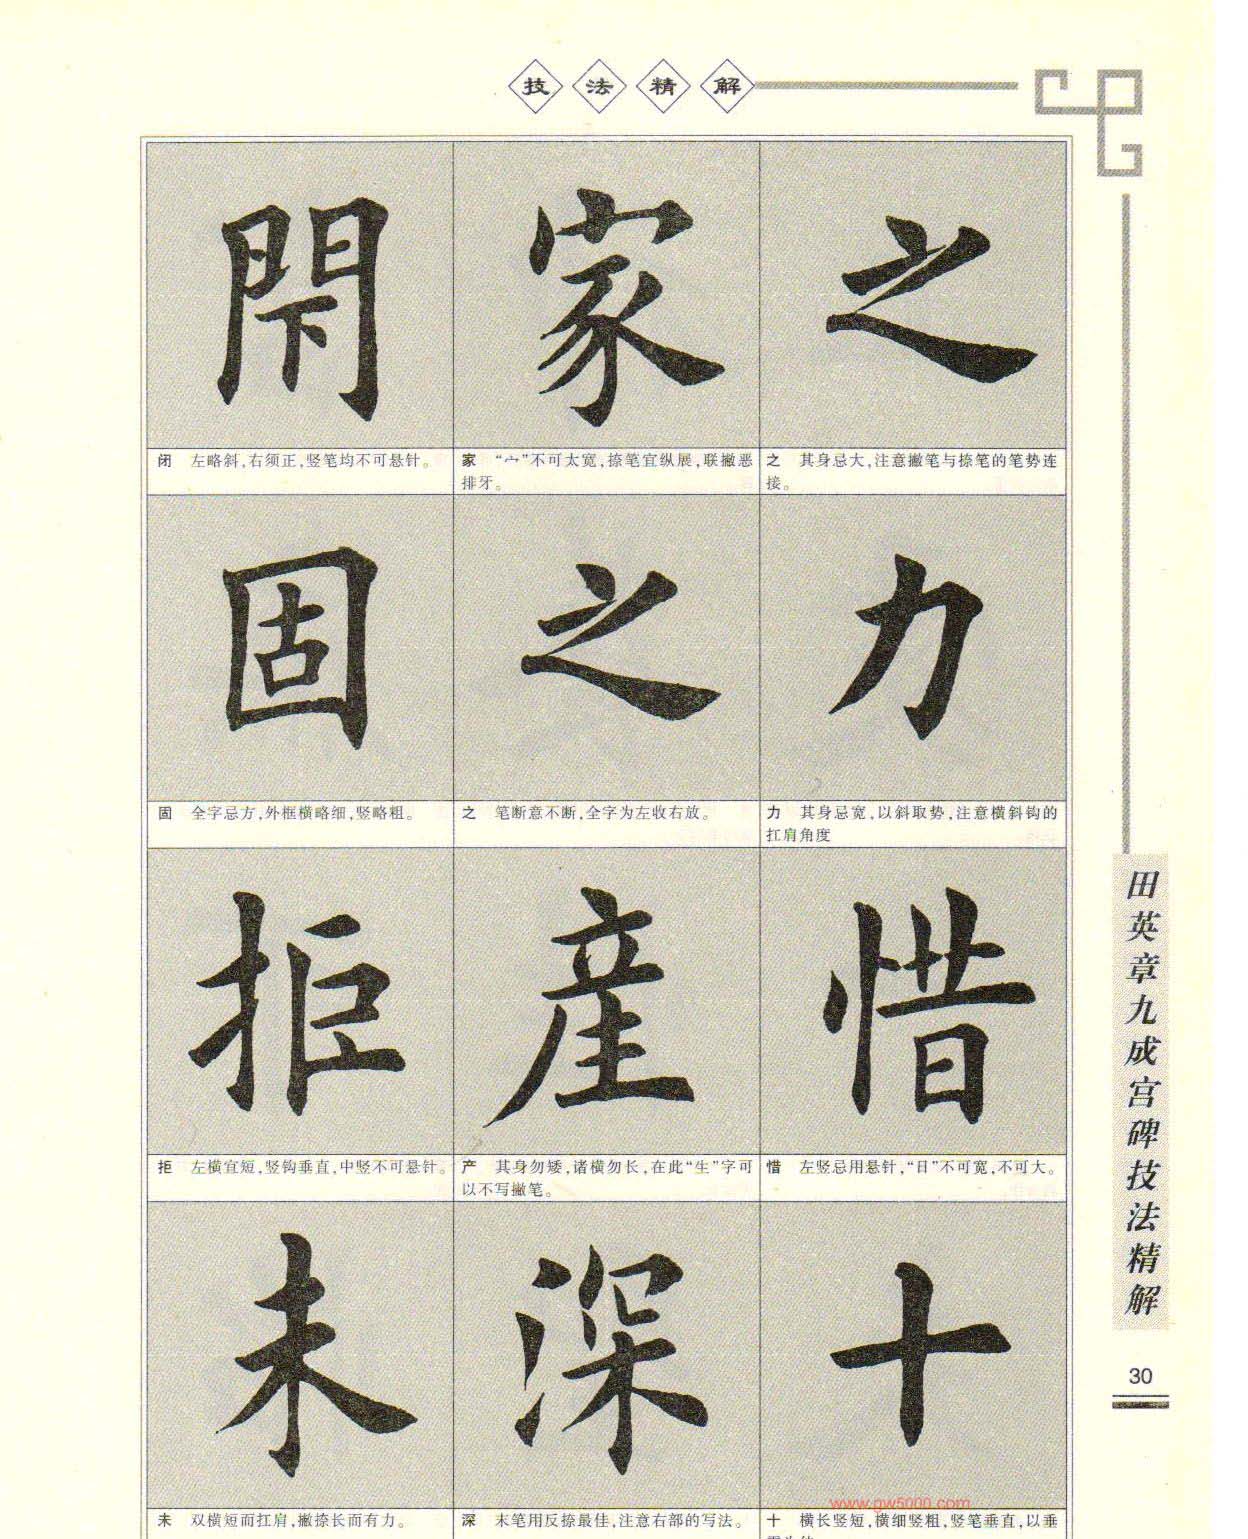 技法精解
閇 家 之
闭 左略斜,右须正,竖笔均不可悬针。
家 “宀”不可太宽,捺笔宜纵展,联撇恶
排牙。
之 其身忌大,注意撇笔与捺笔的笔势连
接。
固 之 力
固 全字忌方,外框横略细,竖略粗。
之 笔断意不断,全字为左收右放。
力 其身忌宽,以斜取势,注意横斜钩的
扛肩角度
拒 産 惜
拒 左横宜短,竖钩垂直,中竖不可悬针。
产 其身勿矮,诸横勿长,在此“生”字可
以不写撇笔。
惜 左竖忌用悬针,“日”不可宽,不可大。
未 深 十
www.gw5000.com
未 双横短而扛肩,撇捺长而有力。
深 末笔用反捺最佳,注意右部的写法。
十 横长竖短,横细竖粗,竖笔垂直,以垂
田英章九成宫碑技法精解
30